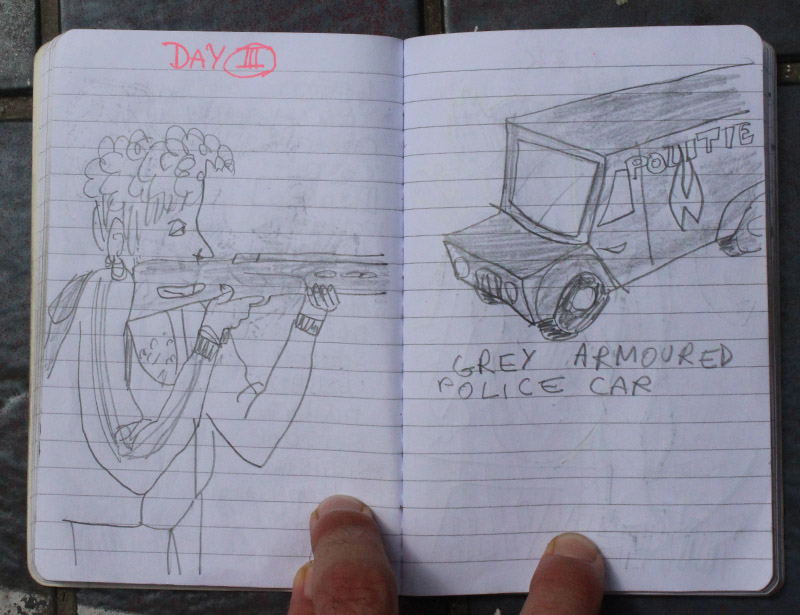 DAY III
POLITIE
GREY ARMOURED
POLICE CAR